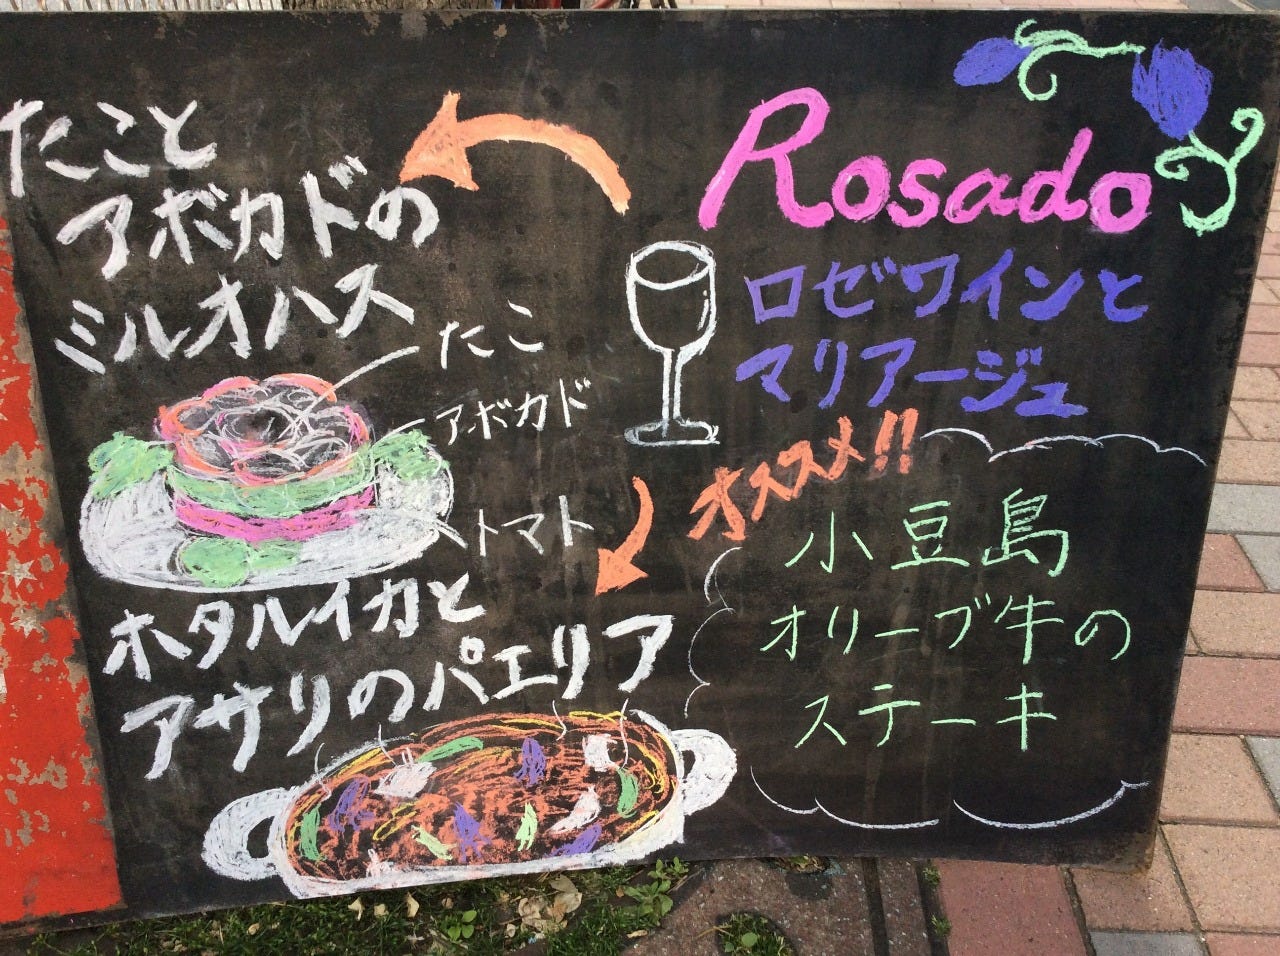 たこと
アボカドの
ミルオハス
たこ
アボカド
トマト
ホタルイカと
アサリのパエリア
Rosado
ロゼワインと
マリアージュ
オススメ!!
小豆島
オリーブ牛の
ステーキ